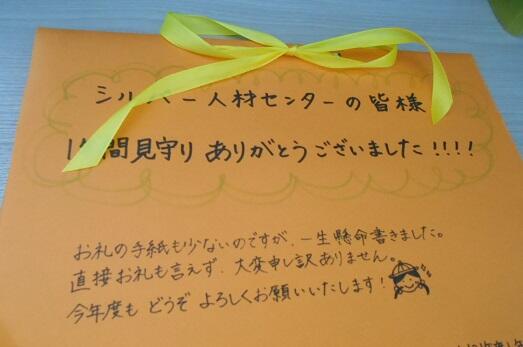 シルバー人材センターの皆様
1年間見守り ありがとうございました!!!!
お礼の手紙も少ないのですが、一生懸命書きました。
直接お礼も言えず、大変申し訳ありません。
今年度も どうぞ よろしくお願いいたします!